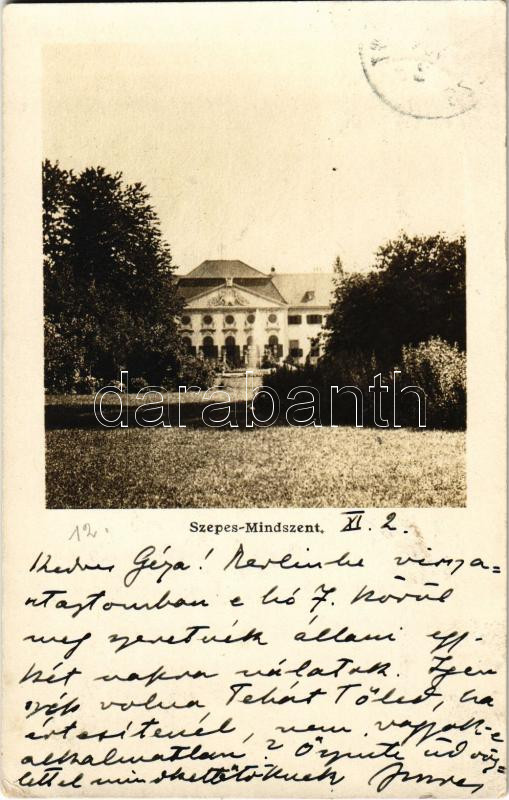 darabanth
Szepes-Mindszent. XI. 2.
12.
Kedves Géza! Berlinbe vissza=
utaztomban e hó 7. körül
meg szeretnék állani egy-
két napra nálatok. Igen
szép volna Tehát Tőled, ha
értesítenél, nem vagyok-e
alkalmatlan? Őszinte üdvöz=
lettel mindkettőtöknek Imre